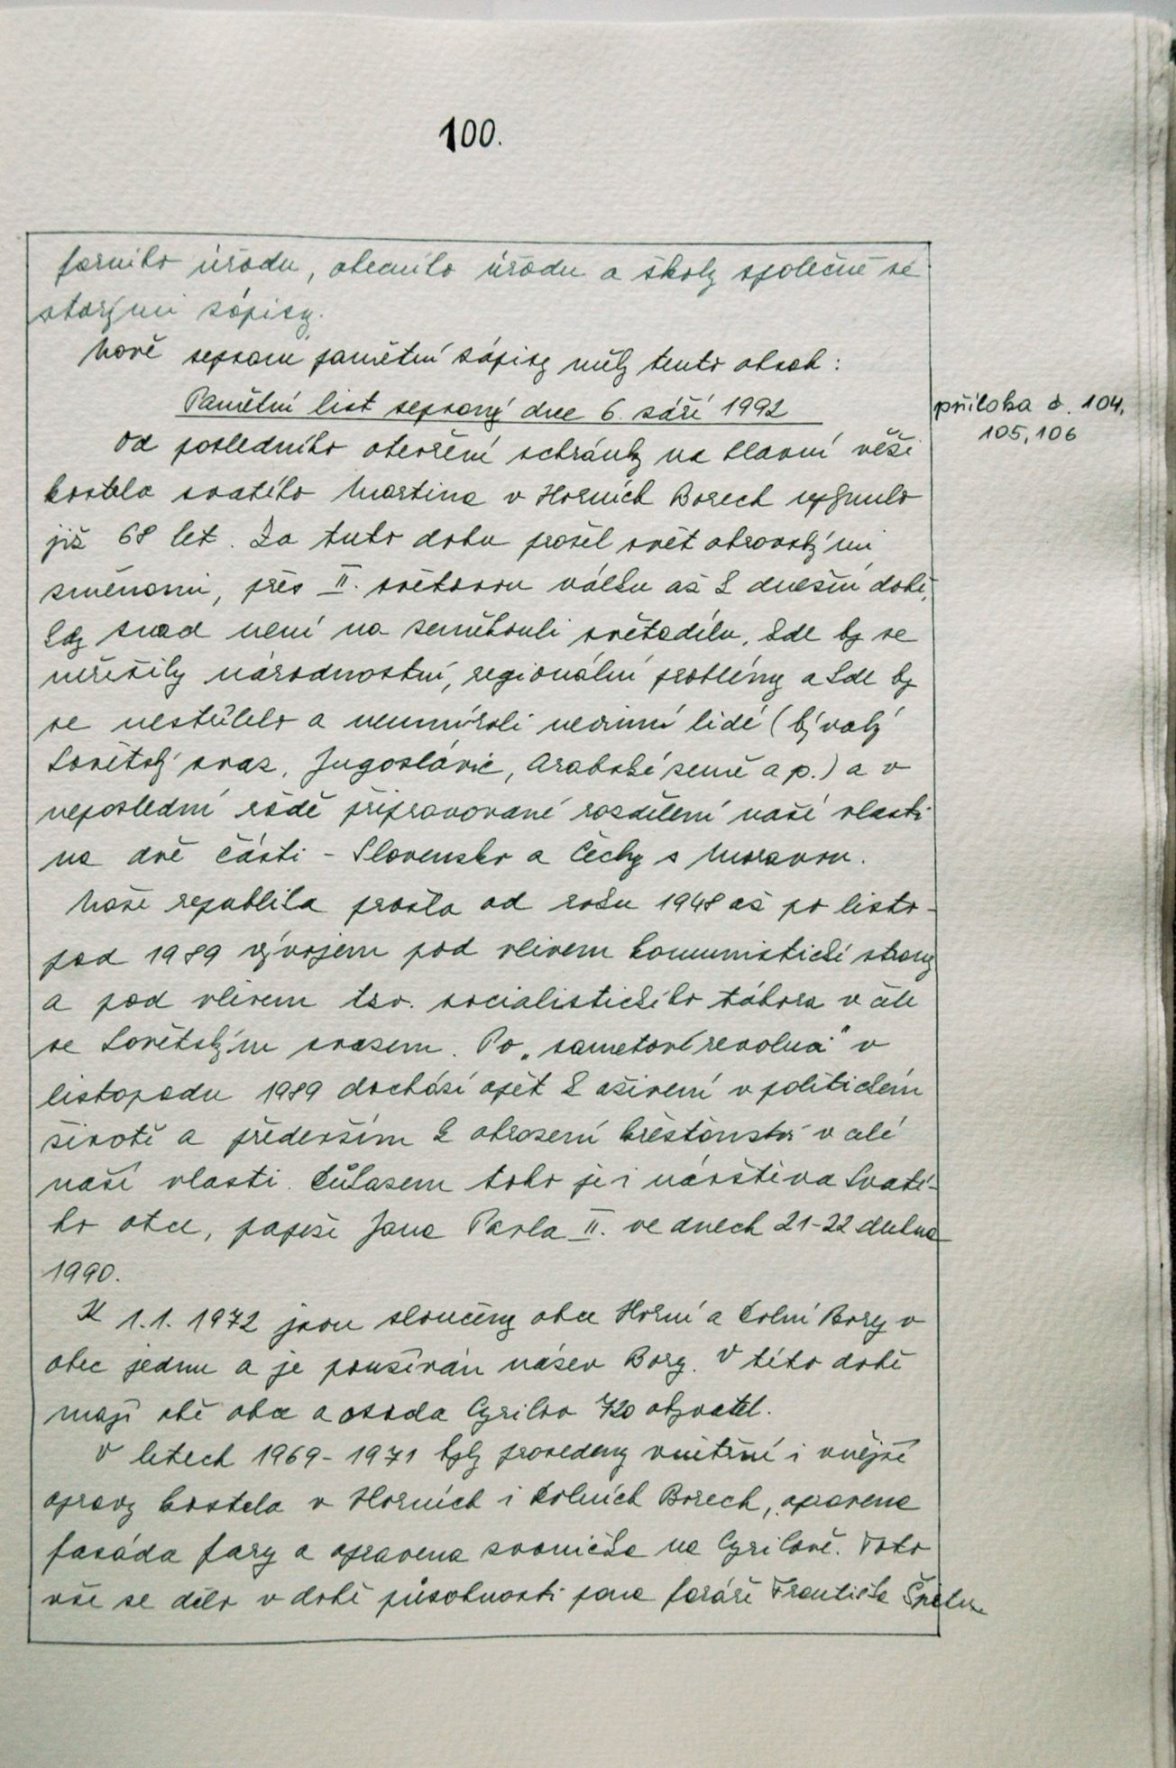 100.
farního úřadu, obecního úřadu a školy společně se
starými zápisy.
Nově sepsané pamětní zápisy měly tento obsah:
Pamětní list sepsaný dne 6. září 1992
příloha č. 104,
105, 106
Od posledního otevření schránky na hlavní věži
kostela svatého Martina v Horních Borech uplynulo
již 68 let. Za tuto dobu prošel svět obrovskými
změnami, přes II. světovou válku až k dnešní době,
kdy snad není na zeměkouli světadílu, kde by se
neřešily národnostní, regionální problémy a kde by
se nestřílelo a neumírali nevinní lidé (bývalý
Sovětský svaz, Jugoslávie, Arabské země a p.) a v
neposlední řádě připravované rozdělení naší vlasti
na dvě části - Slovensko a Čechy s Moravou.
Naše republika prošla od roku 1948 až po listo-
pad 1989 vývojem pod vlivem komunistické strany
a pod vlivem tzv. socialistického tábora v čele
se Sovětským svazem. Po „sametové revoluci" v
listopadu 1989 dochází opět k oživení v politickém
životě a především k obrození křesťanství v celé
naší vlasti. Důkazem toho je i návštěva Svaté-
ho otce, papeže Jana Pavla II. ve dnech 21-22 dubna
1990.
K 1.1. 1972 jsou sloučeny obce Horní a Dolní Bory v
obec jednu a je používán název Bory. V této době
mají obě obce a osada Cyrilov 720 obyvatel.
V letech 1969-1971 byly provedeny vnitřní i vnější
opravy kostela v Horních i Dolních Borech, opravena
fasáda fary a opravena zvonička na Cyrilově. Toto
vše se dělo v době působnosti pana faráře Františka